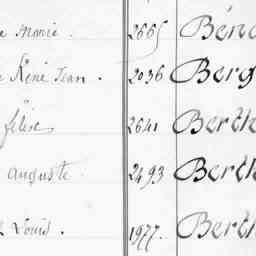 Marie. 2665 Béné
René Jean. 2036 Berg
félise 2641 Berth
auguste 2493 Berth
Louis. 1977. Berth